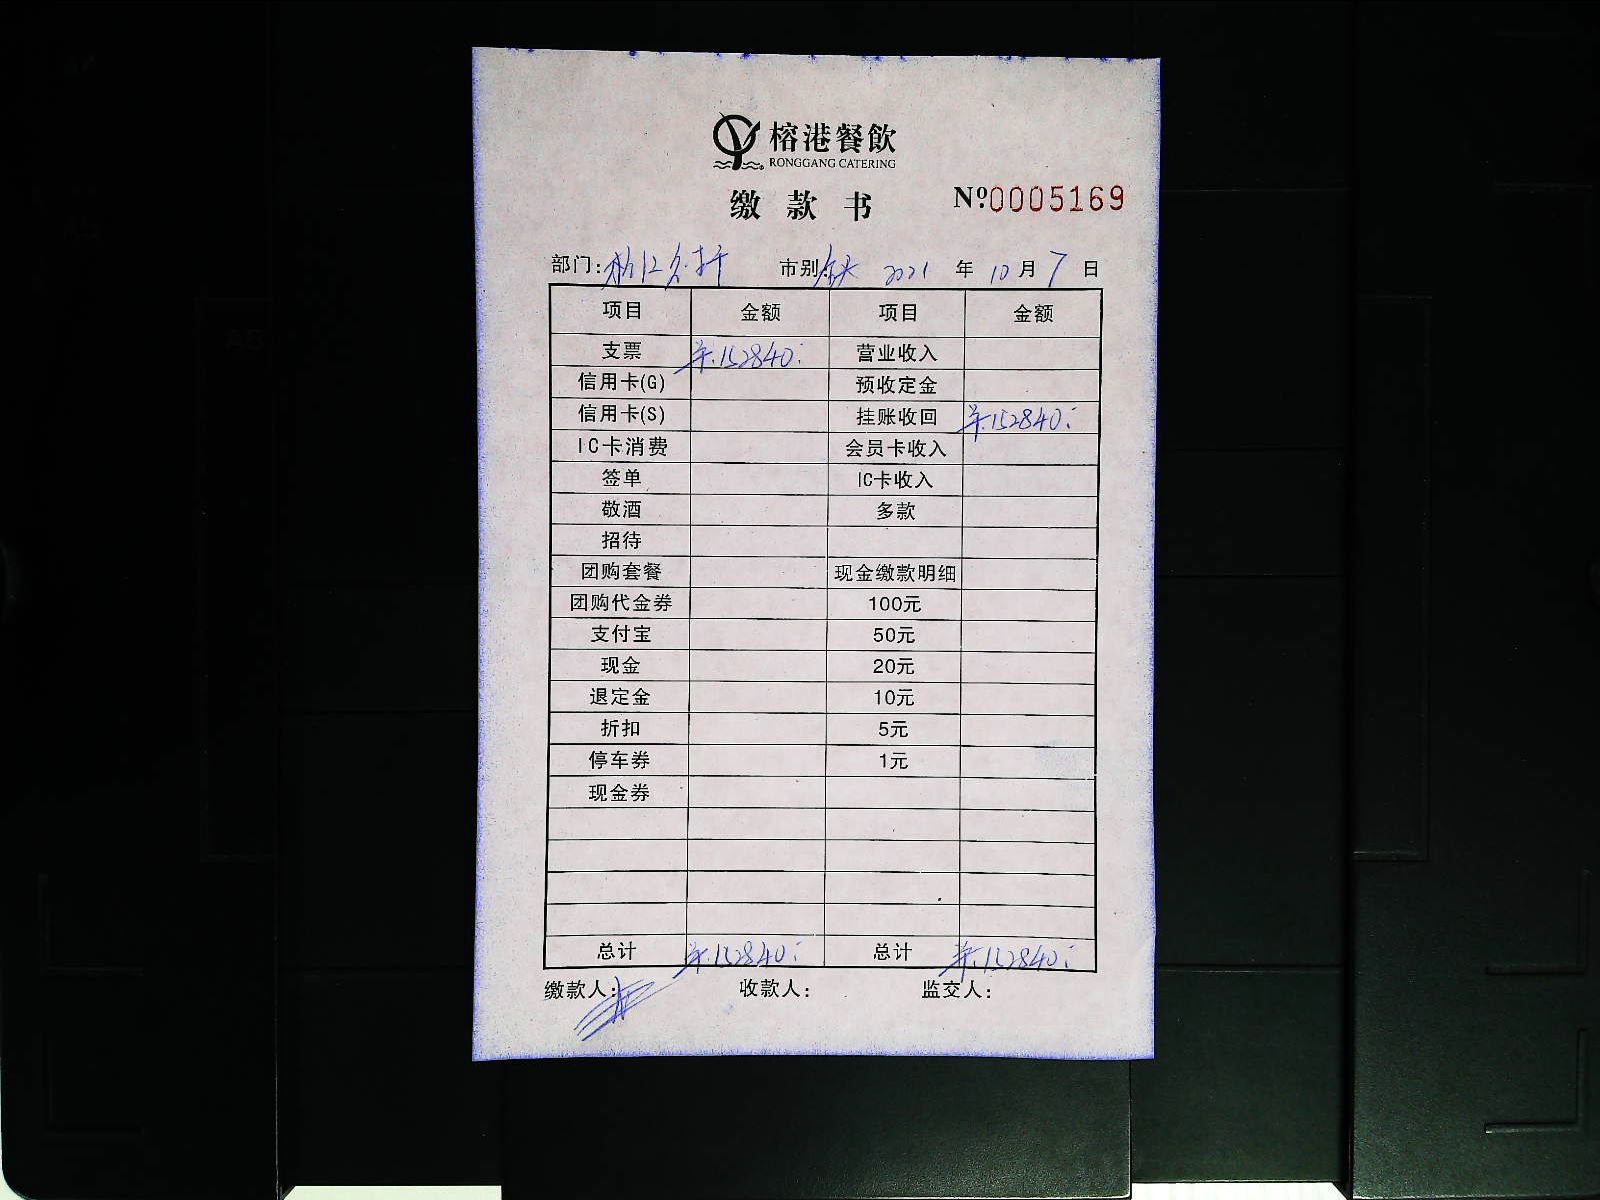 榕港餐飲
RONGGANG CATERING
缴款书 Nº:0005169
部门: 市别: 2021 年 10 月 7 日
项目 金额 项目 金额
支票 ¥:152840: 营业收入
信用卡(G) 预收定金
信用卡(S) 挂账收回 ¥:152840:
IC卡消费 会员卡收入
签单 IC卡收入
敬酒 多款
招待
团购套餐 现金缴款明细
团购代金券 100元
支付宝 50元
现金 20元
退定金 10元
折扣 5元
停车券 1元
现金券
总计 ¥:152840: 总计 ¥:152840:
缴款人: 收款人: 监交人: